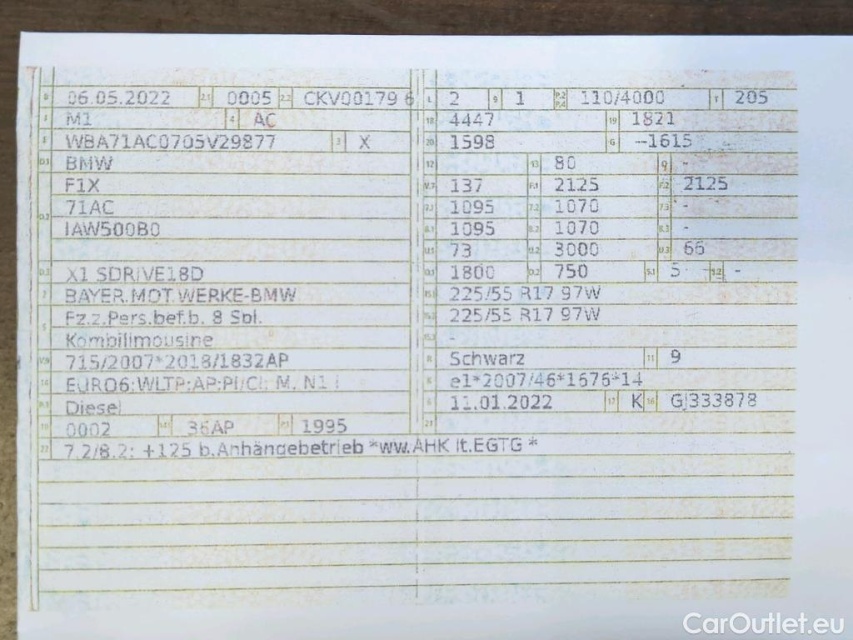 06.05.2022 0005 CKV00179 6
M1 4 AC
WBA71AC0705V29877 3 X
BMW
F1X
71AC
IAW500B0
X1 SDRIVE18D
BAYER.MOT.WERKE-BMW
Fz.z.Pers.bef.b. 8 Spl.
Kombilimousine
715/2007*2018/1832AP
EURO6;WLTP;AP;PI/CI; M, N1 I
Diesel
0002 36AP 1995
7.2/8.2: +125 b.Anhängebetrieb *ww.AHK lt.EGTG *
L 2 9 1 P.2 P.4 110/4000 T 205
18 4447 19 1821
20 1598 G --1615
12 - 13 80 Q -
V.7 137 F.1 2125 F.2 2125
7.1 1095 7.2 1070 7.3 -
8.1 1095 8.2 1070 8.3 -
U.1 73 U.2 3000 U.3 66
O.1 1800 O.2 750 S.1 5 S.2 -
225/55 R17 97W
225/55 R17 97W
-
R Schwarz 11 9
e1*2007/46*1676*14
6 11.01.2022 17 K 16 GJ333878
21
CarOutlet.eu